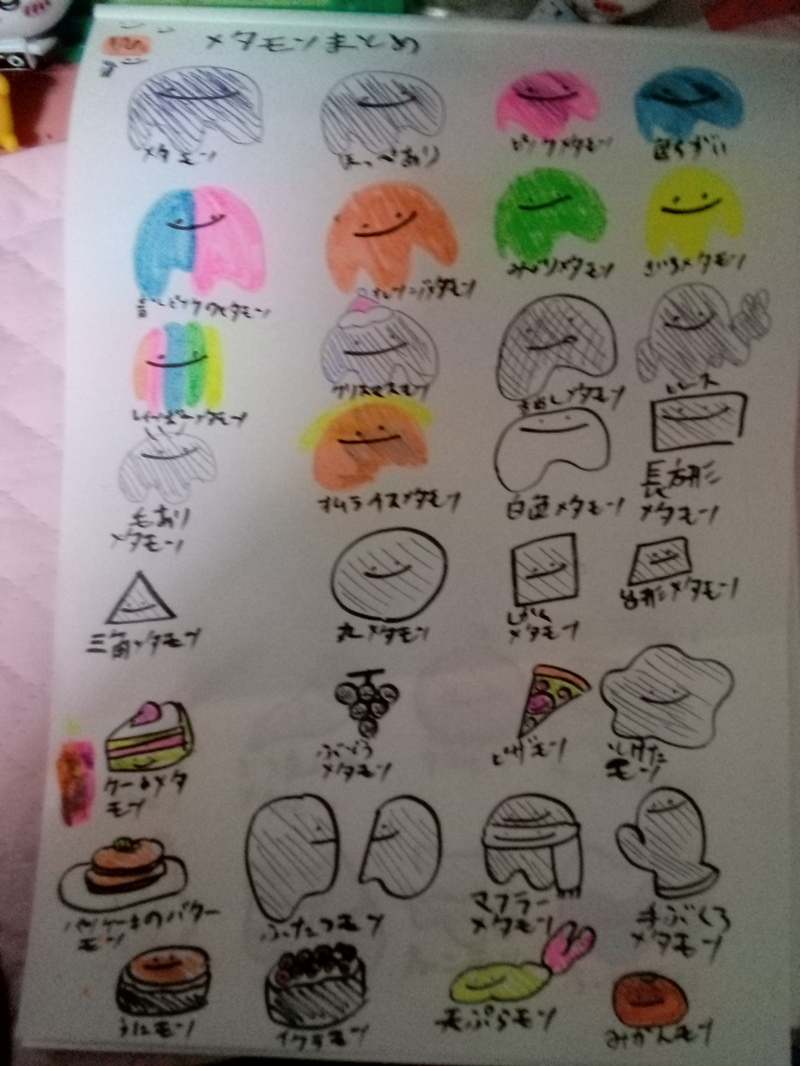 メタモンまとめ
メタモン
ほっぺあり
ピンクメタモン
色ちがい
オレンジメタモン
みどりメタモン
きいろメタモン
クリスマスモン
毛あり
メタモン
オムライスメタモン
白色メタモン
長方形
メタモン
三角メタモン
丸メタモン
しかく
メタモン
台形メタモン
ケーキメタ
モン
ぶどう
メタモン
ピザモン
モン
パンケーキのバター
モン
ふたつモン
マフラー
メタモン
手ぶくろ
メタモン
うにモン
イクラモン
天ぷらモン
みかんモン